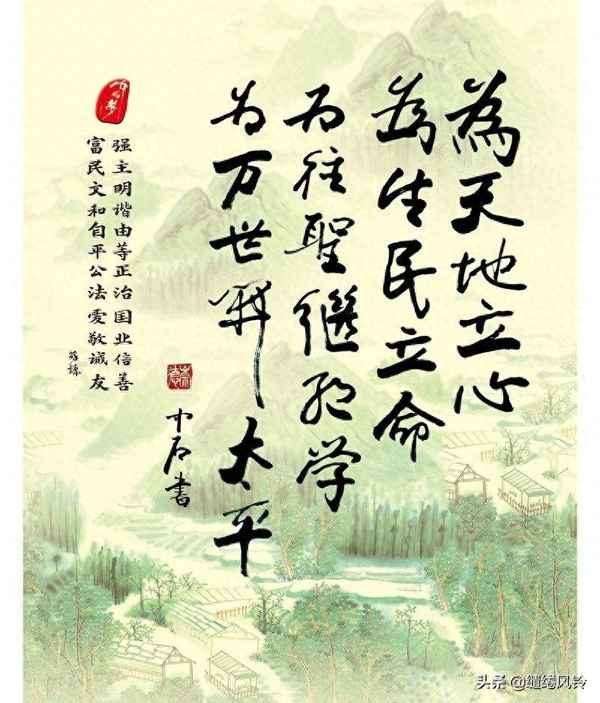 為天地立心
為生民立命
为往聖繼绝学
为万世開太平
中石書
强主明谐由等正治国业信善
富民文和自平公法爱敬诚友
头条 @缱绻风铃